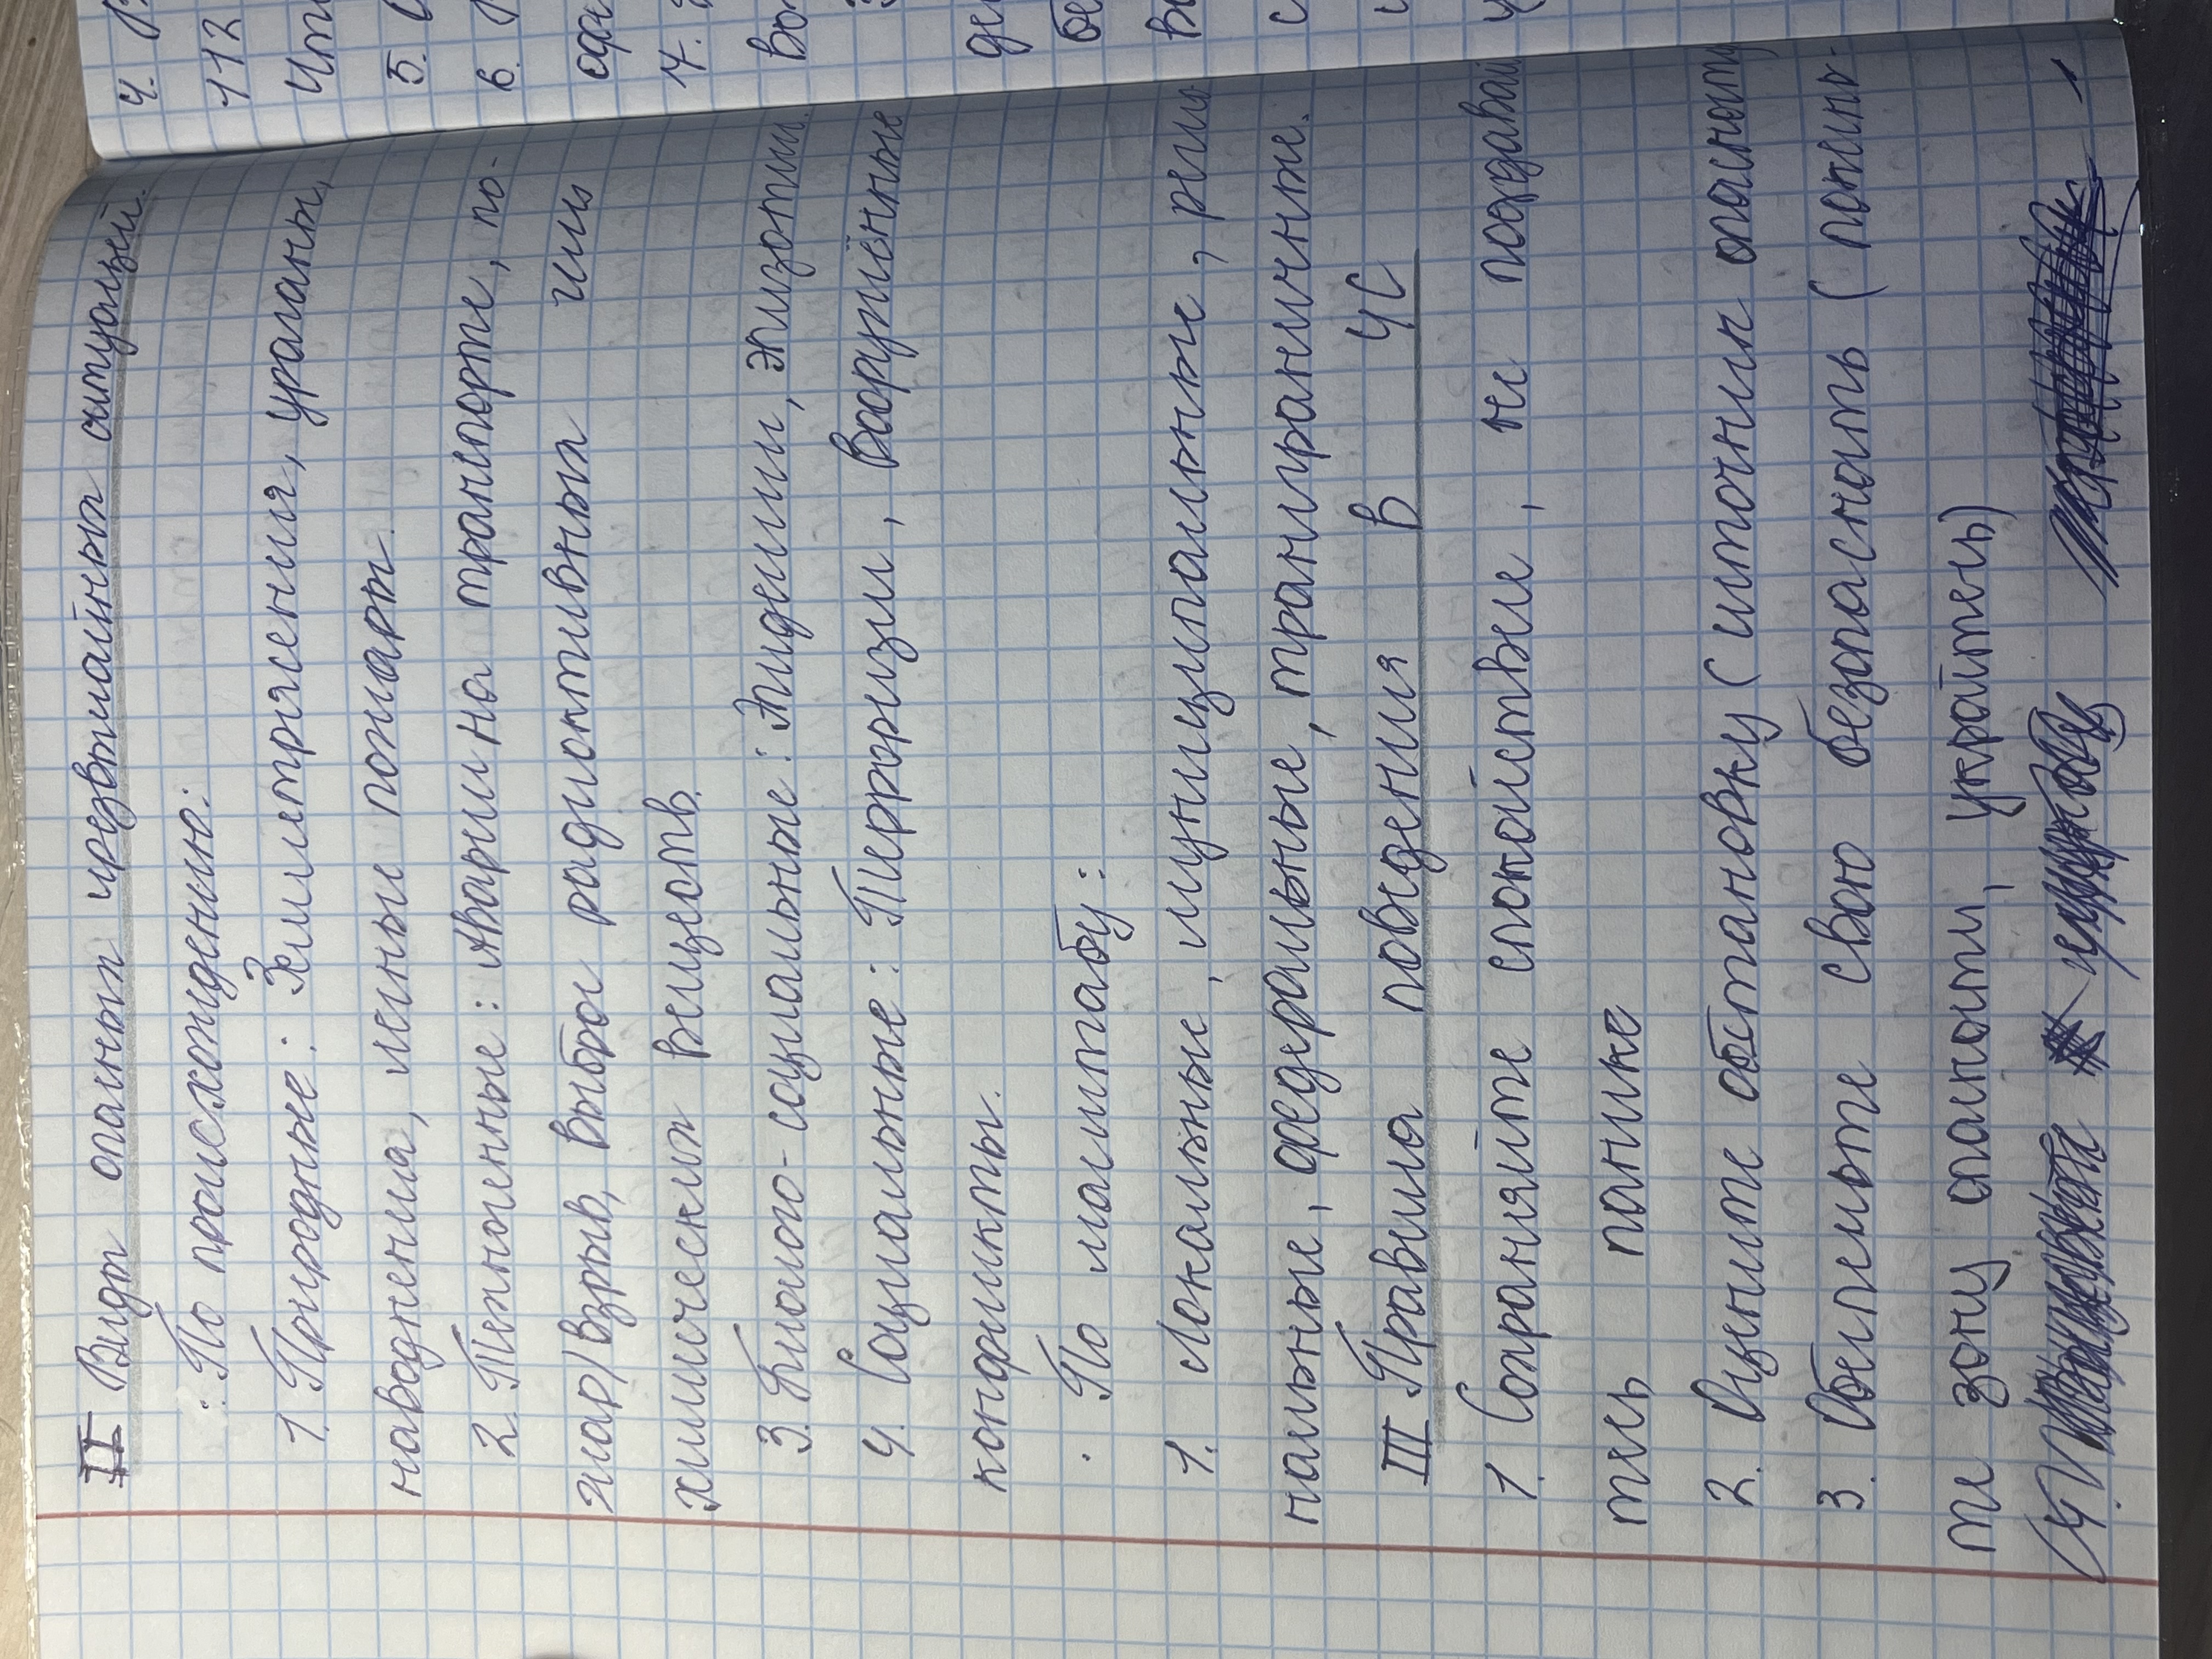 II Виды опасных чрезвычайных ситуаций.
· По происхождению:
1. Природные: Землетрясения, ураганы,
наводнения, лесные пожары.
2. Техногенные: Аварии на транспорте, по-
жар/взрыв, выброс радиоктивных или
химических веществ.
3. Биолого-социальные: Эпидемии, эпизотии.
4. Социальные: Терроризм, вооружённые
конфликты.
· По масштабу:
1. Локальные, муниципальные, регио
нальные, федеральные, трансграничные.
III Правила поведения в ЧС
1. Сохраняйте спокойствие, не поддавай
тесь панике
2. Оцените обстановку (источник опасности
3. Обеспечьте свою безопасность (покинь-
те зону опасности, укройтесь)
(4.
4.
112
5.
6.
7.